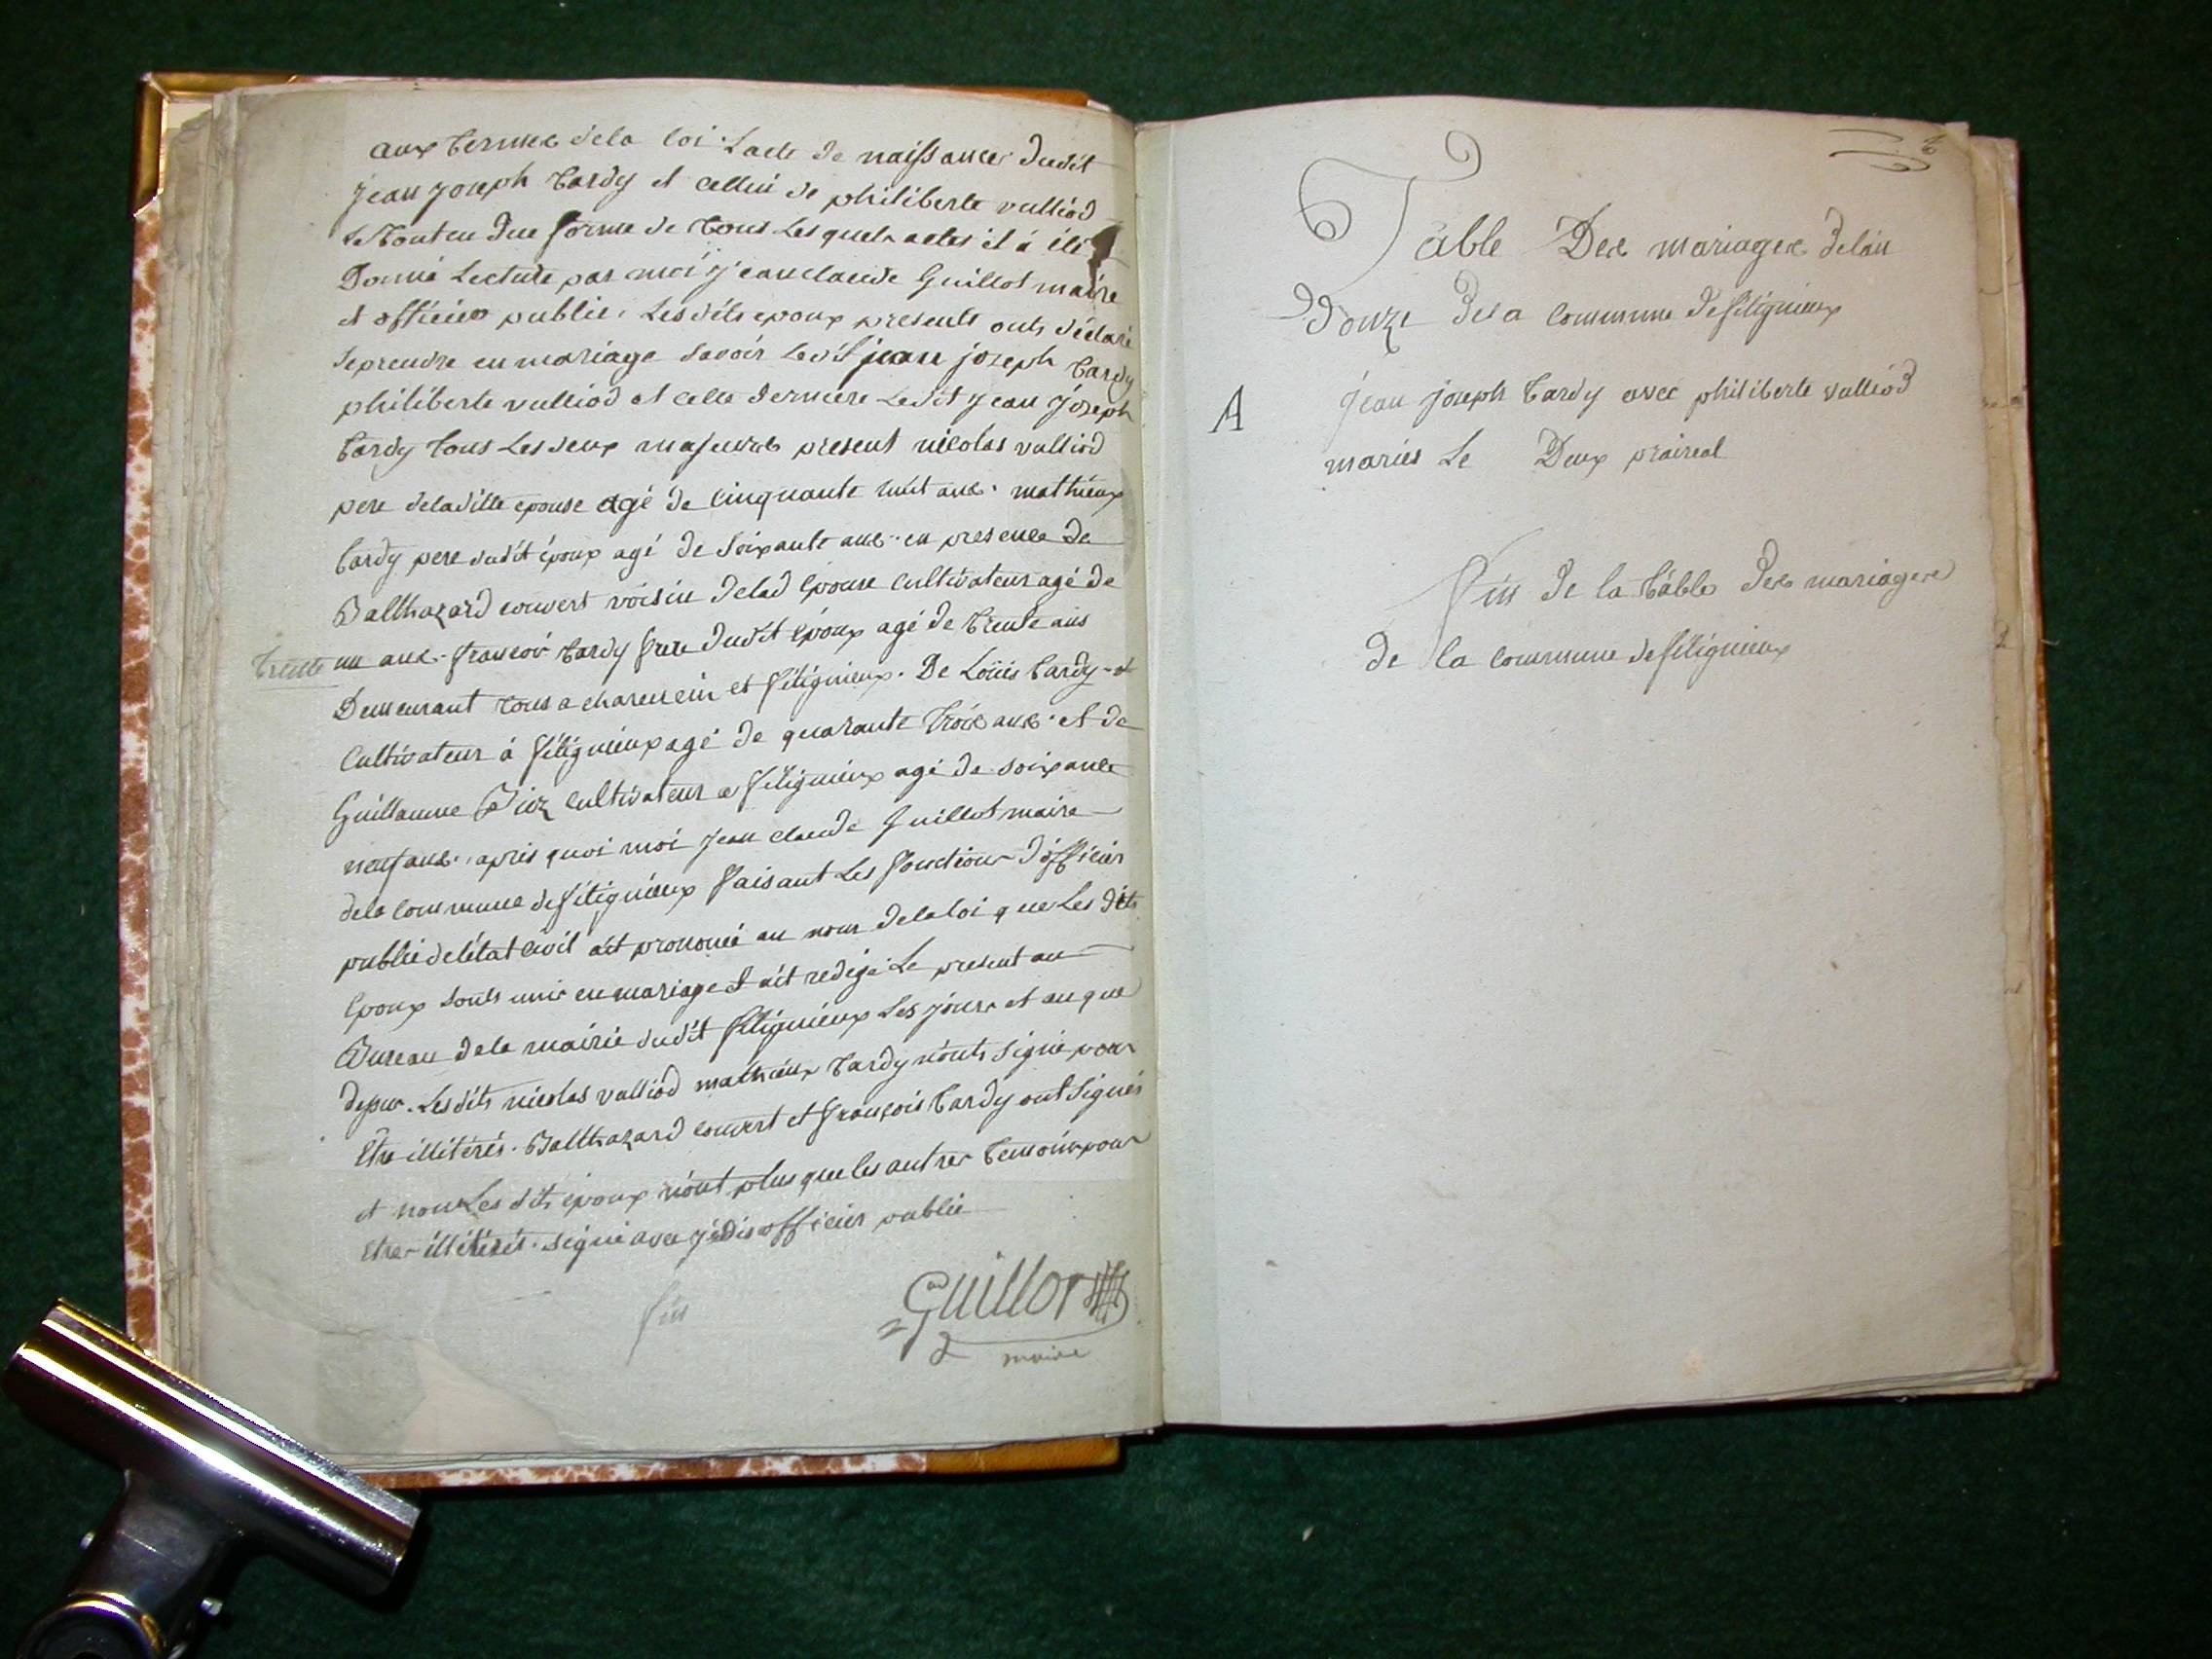 aux termes dela loi. Lacte de naissance dudit
jean joseph tardy et cellui de philiberte vulliod
Le tout en due forme de tous Les quels actes il à été
Donné Lecture par moi jean claude Guillot maire
et officier public. Lesdits epoux presents onts déclaré
se prendre en mariage savoir Ledit jean joseph tardy
philiberte vulliod et celle derniere Ledit jean joseph
tardy tous Les deux majeures present nicolas vulliod
pere deladitte epouse agé de cinquante huit ans. mathieux
tardy pere dudit époux agé de soixante ans. en presence de
Balthazard couvert voisin delad epouse cultivateur agé de
trente un ans. francois tardy frere dudit epoux agé de trente ans
Demeurant tous a chareuein et filignieux. De Loüis tardy et
cultivateur à filignieux agé de quarante trois ans. et de
Guillaume cultivateur a filignieux agé de soixante
neuf ans. après quoi moi jean claude Guillot maire
dela commune de filignieux faisant Les fonctions d'officier
public de létat civil ait prononcé au nom dela loi que Les dits
epoux sonts unis en mariage et ait redigé Le present au
Bureau dela mairie dudit filignieux Les jours et an que
dessus. Lesdits nicolas vulliod mathieux tardy n'onts signé pour
être illitérés. Balthazard couvert et françois tardy ont signés
et non Les dits epoux n'ont plus que les autres temoins pour
etre illitérés. signé avec officier public
fin
Guillot
maire
Table Des mariages delan
douze dela commune de filignieux
A jean joseph tardy avec philiberte vulliod
mariés Le Deux praireal
fin de la table des mariages
de la commune de filignieux